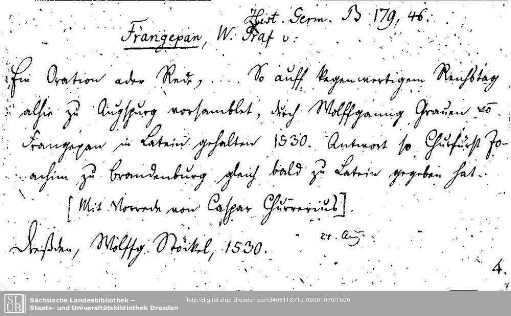 Hist. Germ. B 179, 46.
Frangepan, W. Graf v:
Ein Oration oder Rede, . . So auff kegenwertigem Reichstag
alhie zu Augspurg vorsamblet, durch Wolffganng Grauen vo
Frangepan in Latein gehalten 1530. Antwort so Churfürst Jo-
achim zu Brandenburg gleich bald zu Latein gegeben hat.
[Mit Vorrede von Caspar Churrerius].
21. Aug.
Dreßden, Wolffg. Stöckel, 1530.
4.
Sächsische Landesbibliothek –
Staats- und Universitätsbibliothek Dresden